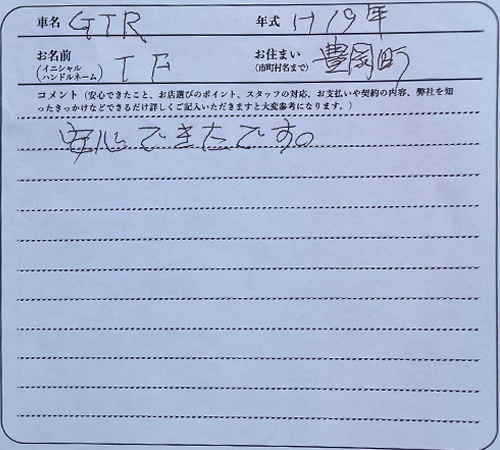 車名 GTR 年式 H19年
お名前 (イニシャル ハンドルネーム) T F お住まい (市町村名まで) 豊岡町
コメント(安心できたこと、お店選びのポイント、スタッフの対応、お支払いや契約の内容、弊社を知
ったきっかけなどできるだけ詳しくご記入いただきますと大変参考になります。)
安心できたです。